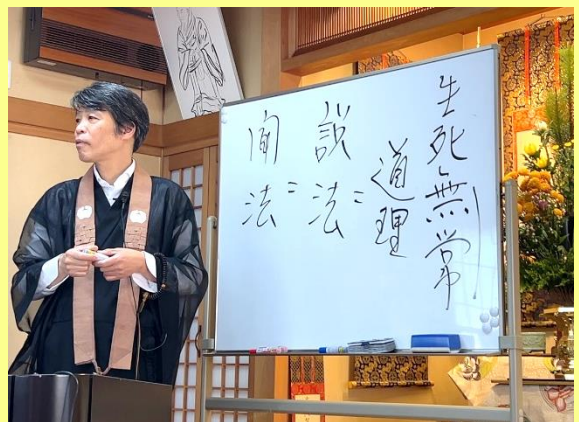 生死無常
道理
説法
聞法